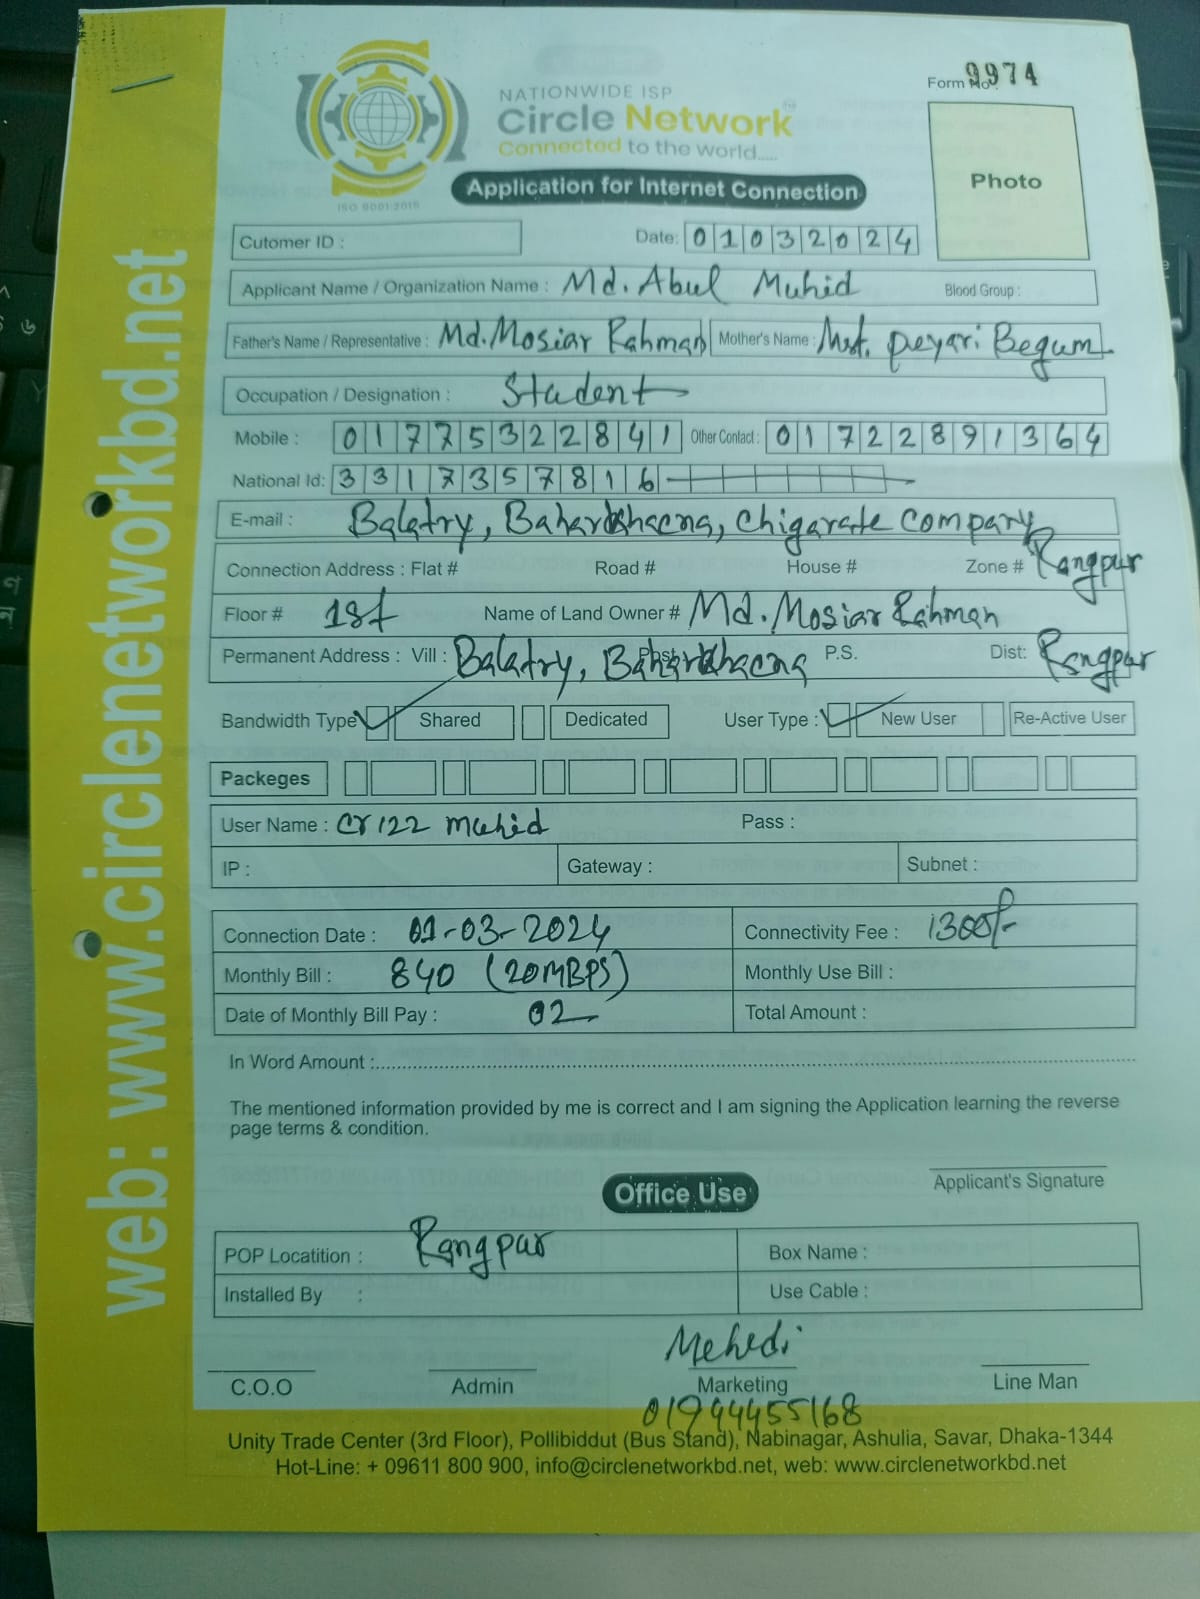 Form No. 9974
NATIONWIDE ISP
Circle Network
Connected to the world.....
ISO 9001:2015
Application for Internet Connection
Photo
Cutomer ID :
Date: 01032024
Applicant Name / Organization Name : Md. Abul Muhid Blood Group :
Father's Name / Representative : Md. Mosiar Rahman Mother's Name : Mst. peyari Begum
Occupation / Designation : Student
Mobile : 01775322841 Other Contact : 01722891364
National Id: 3317357816
E-mail : Balatry, Baharkhacna, Chigarate company
Connection Address : Flat # Road # House # Zone # Rangpur
Floor # 1st Name of Land Owner # Md. Mosiar Rahman
Permanent Address : Vill : Balatry, Post Baharkhacna P.S. Dist: Rangpur
Bandwidth Type ✓ Shared Dedicated User Type : ✓ New User Re-Active User
Packeges
User Name : cr122 muhid Pass :
IP : Gateway : Subnet :
Connection Date : 01-03-2024 Connectivity Fee : 1300/-
Monthly Bill : 840 (20MBPS) Monthly Use Bill :
Date of Monthly Bill Pay : 02 Total Amount :
In Word Amount :
The mentioned information provided by me is correct and I am signing the Application learning the reverse
page terms & condition.
Applicant's Signature
Office Use
POP Locatition : Rangpur Box Name :
Installed By : Use Cable :
Mehedi
C.O.O Admin Marketing Line Man
01944455168
Unity Trade Center (3rd Floor), Pollibiddut (Bus Stand), Nabinagar, Ashulia, Savar, Dhaka-1344
Hot-Line: + 09611 800 900, info@circlenetworkbd.net, web: www.circlenetworkbd.net
web: www.circlenetworkbd.net